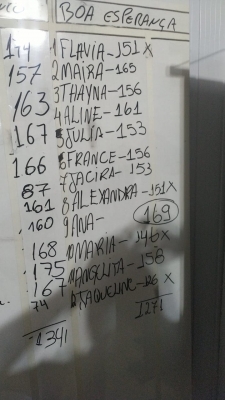 BOA ESPERANÇA
174 1 FLAVIA-151 X
157 2 MAIRA-165
163 3 THAYNA-156
4 ALINE-161
167 5 JULIA-153
166 6 FRANCE-156
87 7 JACIRA 153
161 8 ALEXANDRA-151 X
160 9 ANA- 169
168 10 MARIA- 146 X
175 11 ANGELITA-158
167 12 JAQUELINE-126 X
74 1271
1341